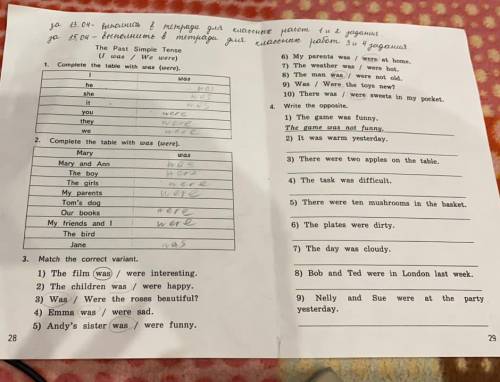 за 13.04 - выполнить в тетради для классных работ 1 и 2 задания
за 15.04 - выполнить в тетради для классных работ 3 и 4 задания
The Past Simple Tense
(I was / We were)
1. Complete the table with was (were).
I was
he was
she was
it was
you were
they were
we were
2. Complete the table with was (were).
Mary was
Mary and Ann were
The boy were
The girls were
My parents were
Tom's dog
Our books were
My friends and I were
The bird
Jane was
3. Match the correct variant.
1) The film was / were interesting.
2) The children was / were happy.
3) Was / Were the roses beautiful?
4) Emma was / were sad.
5) Andy's sister was / were funny.
28
6) My parents was / were at home.
7) The weather was / were hot.
8) The man was / were not old.
9) Was / Were the toys new?
10) There was / were sweets in my pocket.
4. Write the opposite.
1) The game was funny.
The game was not funny.
2) It was warm yesterday.
3) There were two apples on the table.
4) The task was difficult.
5) There were ten mushrooms in the basket.
6) The plates were dirty.
7) The day was cloudy.
8) Bob and Ted were in London last week.
9) Nelly and Sue were at the party
yesterday.
29